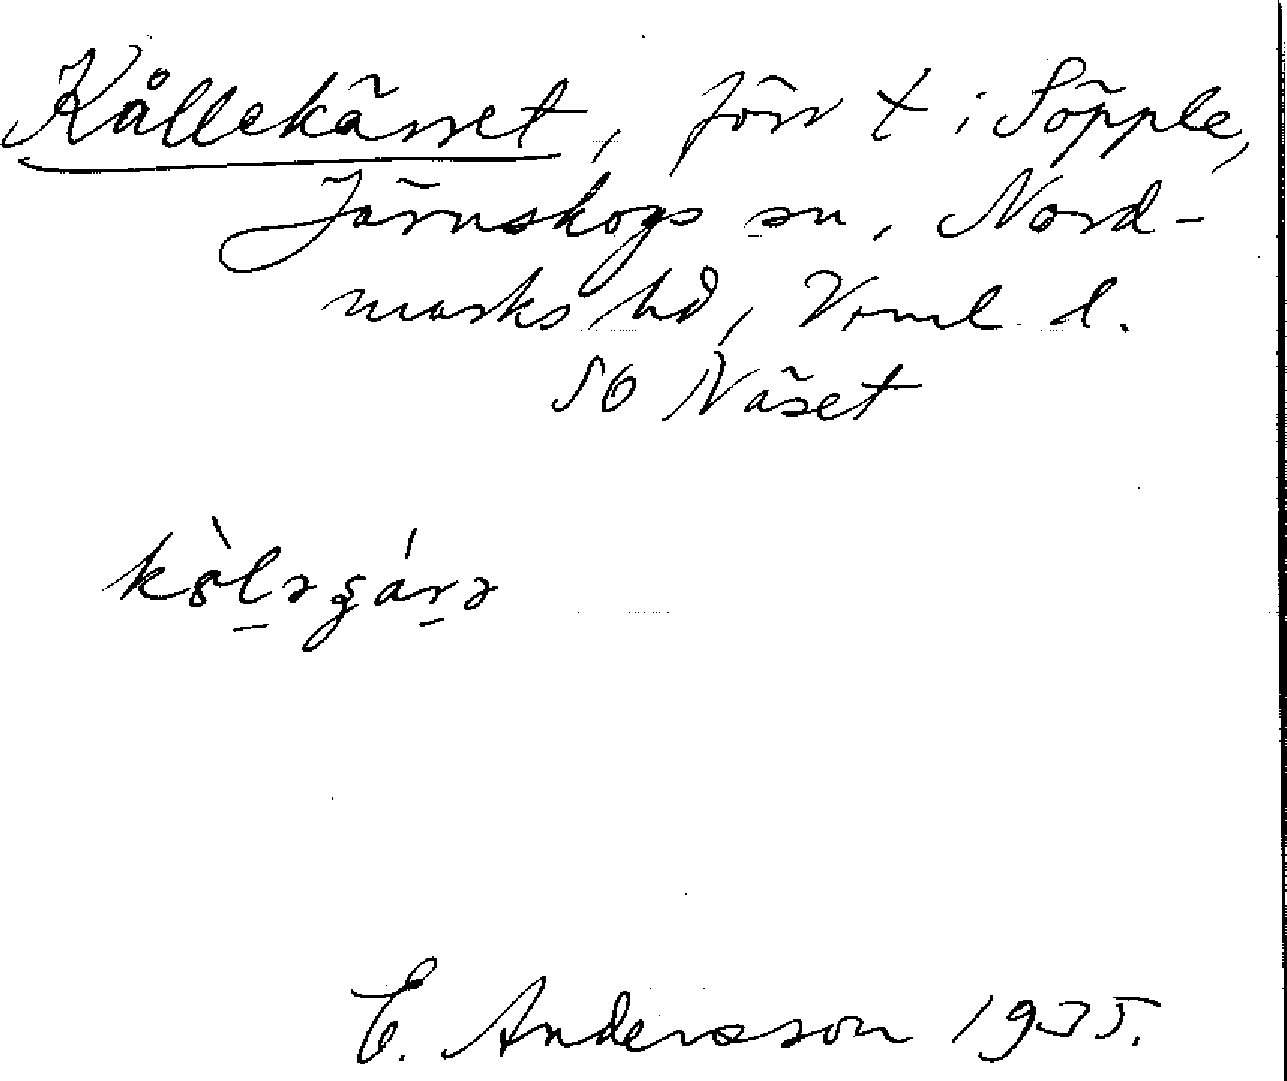 Kållekärret, förr t i Söpple,
Järnskogs sn, Nord-
marks hd, Vrml l.
50 Näset
E. Andersson 1935.